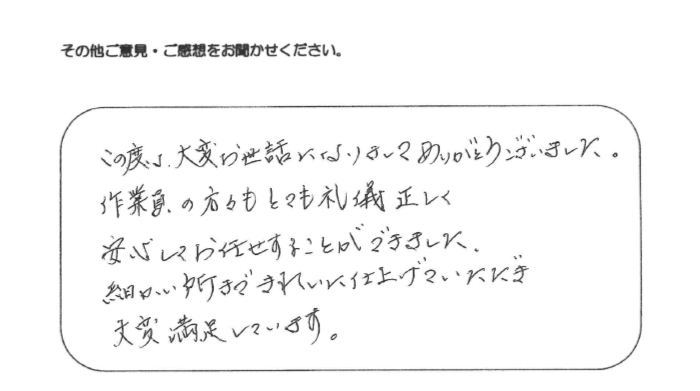 その他ご意見・ご感想をお聞かせください。
この度は、大変お世話になりましてありがとうございました。
作業員の方々もとても礼儀正しく
安心してお任せすることができました。
細かい所まできれいに仕上げていただき
大変満足しています。